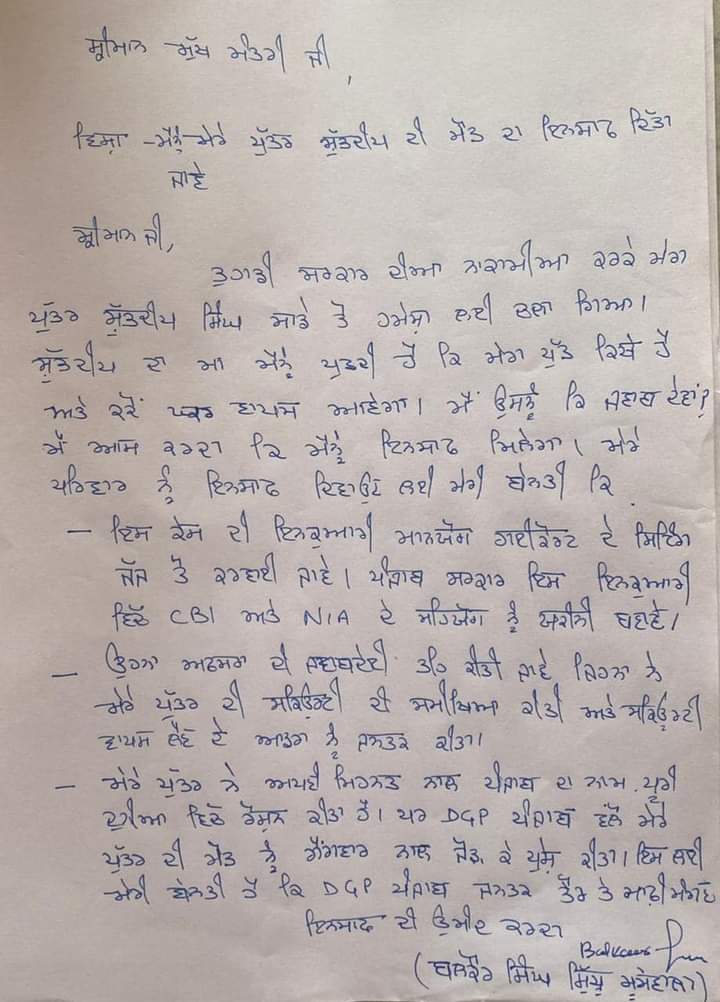 ਸ਼੍ਰੀਮਾਨ ਮੁੱਖ ਮੰਤਰੀ ਜੀ,
ਵਿਸ਼ਾ - ਮੈਨੂੰ ਮੇਰੇ ਪੁੱਤਰ ਸ਼ੁੱਭਦੀਪ ਦੀ ਮੌਤ ਦਾ ਇਨਸਾਫ ਦਿੱਤਾ
ਜਾਵੇ
ਸ਼੍ਰੀਮਾਨ ਜੀ,
ਤੁਹਾਡੀ ਸਰਕਾਰ ਦੀਆ ਨਾਕਾਮੀਆ ਕਰਕੇ ਮੇਰਾ
ਪੁੱਤਰ ਸ਼ੁੱਭਦੀਪ ਸਿੰਘ ਸਾਡੇ ਤੋ ਹਮੇਸ਼ਾ ਲਈ ਚਲਾ ਗਿਆ।
ਸ਼ੁੱਭਦੀਪ ਦਾ ਮਾ ਮੈਨੂੰ ਪੁਛਦੀ ਹੈ ਕਿ ਮੇਰਾ ਪੁੱਤ ਕਿਥੇ ਹੈ
ਅਤੇ ਕਦੋਂ ਘਰ ਵਾਪਸ ਆਵੇਗਾ। ਮੈਂ ਉਸਨੂੰ ਕਿ ਜਵਾਬ ਦੇਵਾਂ?
ਮੈਂ ਆਸ ਕਰਦਾ ਕਿ ਮੈਨੂੰ ਇਨਸਾਫ ਮਿਲੇਗਾ। ਮੇਰੇ
ਪਰਿਵਾਰ ਨੂੰ ਇਨਸਾਫ ਦਿਵਾਉਣ ਲਈ ਮੇਰੀ ਬੇਨਤੀ ਕਿ
- ਇਸ ਕੇਸ ਦੀ ਇਨਕੁਆਰੀ ਮਾਨਯੋਗ ਹਾਈਕੋਰਟ ਦੇ ਸਿਟਿੰਗ
ਜੱਜ ਤੋਂ ਕਰਵਾਈ ਜਾਵੇ। ਪੰਜਾਬ ਸਰਕਾਰ ਇਸ ਇਨਕੁਆਰੀ
ਵਿਚ CBI ਅਤੇ NIA ਦੇ ਸਹਿਯੋਗ ਨੂੰ ਯਕੀਨੀ ਬਣਾਵੇ।
- ਉਹਨਾ ਅਫਸਰਾ ਦੀ ਜਵਾਬਦੇਹੀ ਤਹਿ ਕੀਤੀ ਜਾਵੇ ਜਿਹਨਾ ਨੇ
ਮੇਰੇ ਪੁੱਤਰ ਦੀ ਸਕਿਉਰਟੀ ਦੀ ਸਮੀਖਿਆ ਕੀਤੀ ਅਤੇ ਸਕਿਉਰਟੀ
ਵਾਪਸ ਲੈਣ ਦੇ ਆਡਰਾ ਨੂੰ ਜਨਤਕ ਕੀਤਾ।
- ਮੇਰੇ ਪੁੱਤਰ ਨੇ ਅਪਣੀ ਮਿਹਨਤ ਨਾਲ ਪੰਜਾਬ ਦਾ ਨਾਮ ਪੂਰੀ
ਦੁਨੀਆ ਵਿਚੋ ਰੌਸ਼ਨ ਕੀਤਾ ਹੈ। ਪਰ DGP ਪੰਜਾਬ ਵੱਲੋ ਮੇਰੇ
ਪੁੱਤਰ ਦੀ ਮੌਤ ਨੂੰ ਗੈਂਗਵਾਰ ਨਾਲ ਜੋੜ ਕੇ ਪੇਸ਼ ਕੀਤਾ। ਇਸ ਲਈ
ਮੇਰੀ ਬੇਨਤੀ ਹੈ ਕਿ DGP ਪੰਜਾਬ ਜਨਤਕ ਤੌਰ ਤੇ ਮਾਫ਼ੀ ਮੰਗਣ
ਇਨਸਾਫ ਦੀ ਉਮੀਦ ਕਰਦਾ
Balkaur
(ਬਲਕੌਰ ਸਿੰਘ ਸਿੱਧੂ ਮੂਸੇਵਾਲਾ)